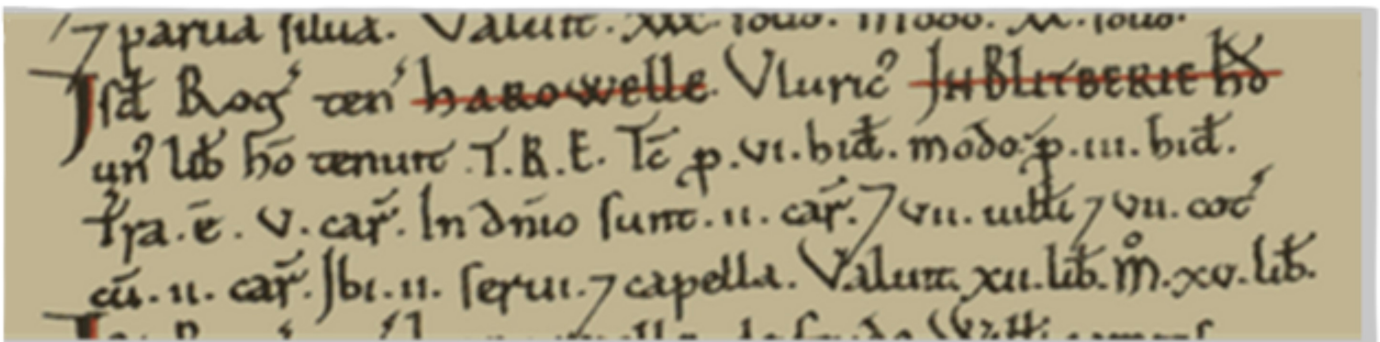 ⁊ parua silua. Valuit .xxx. solid. Modo .xx. solid.
Isd̄ Rog' ten' HAROWELLE. Vluric' IN BLITBERIE HD̄
un' lib̄ hō tenuit .T.R.E. Tc̄ p .vi. hid̄. modo p .iii. hid̄.
Tra .ē. v. car̄. In dn̄io sunt .ii. car̄. ⁊ vii. uill̄i ⁊ vii. cot'
cū .ii. car̄. Ibi .ii. serui. ⁊ capella. Valuit xii. lib̄. m̊ .xv. lib̄.